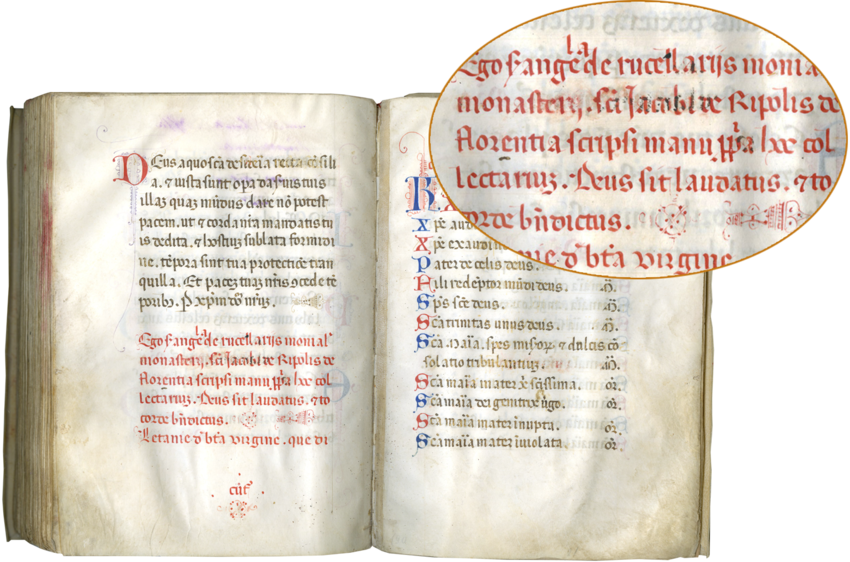 Deus a quo sc̄a desideria recta cōsili
a. ⁊ iusta sunt opa da seruis tuis
illaʒ quaʒ mūdus dare nō potest
pacem. ut ⁊ corda nr̄a mandatis tu
is dedita. ⁊ hostiuʒ sublata formidi
ne. tēpora sint tua protectiōe tran
quilla. Et pacez tuaʒ nr̄is ꝯcede tē
poribȝ. P xp̄m dn̄m nr̄uʒ.
Ego s ange la de rucellariis monial
monasterij. sc̄i Jacobi de Ripolis de
florentia scripsi manu ꝓpria hoc col
lectariuʒ. Deus sit laudatus. ⁊ to
corde bn̄dictus.
Letanie d̓ bt̄a virgine. que di
cūt̄
Xp̄e aud
Xp̄e exaudi
Pater de celis deus.
Fili redēptor mūdi deus. m̄.
Sp̄s sc̄e deus. m̄.
Sc̄a trinitas unus deus. m̄.
Sc̄a Maīa. spes miſoꝝ. ⁊ dulcis cō
solatio tribulantiuʒ. m̄.
Sc̄a maīa mater xp̄i sc̄issima. or̄.
Sc̄a maīa dei genitrix ūgo. or̄.
Sc̄a maīa mater īnupta. or̄.
Sc̄a maīa mater īuiolata. or̄.
Ego s ange la de rucellariis monia
monasterij. sc̄i Jacobi de Ripolis de
florentia scripsi manu ꝓpria hoc col
lectariuʒ. Deus sit laudatus. ⁊ to
corde bn̄dictus.
nie d̓ bt̄a virgine